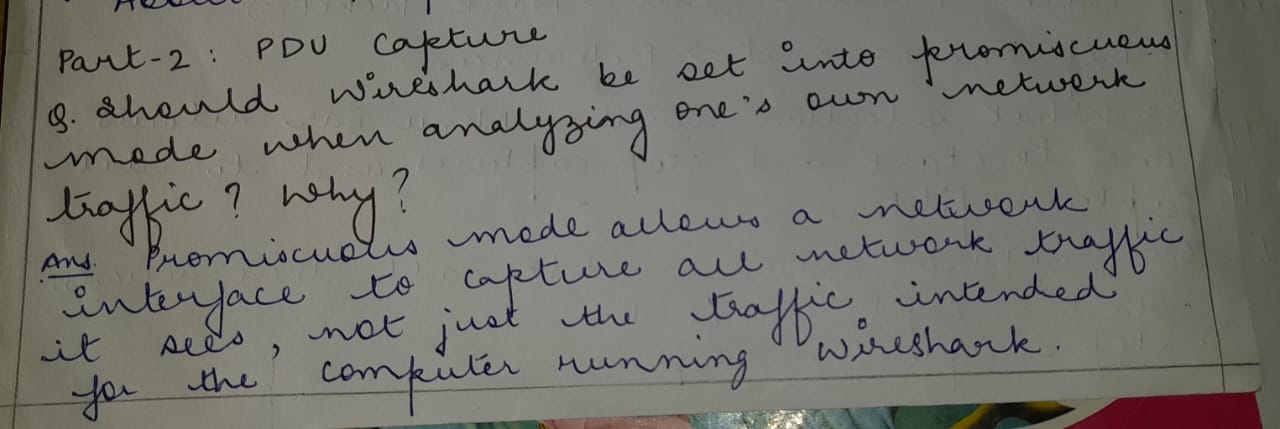 Part-2: PDU Capture
Q. Should Wireshark be set into promiscuous
mode when analyzing one's own network
traffic? Why?
Ans. Promiscuous mode allows a network
interface to capture all network traffic
it sees, not just the traffic intended
for the computer running Wireshark.